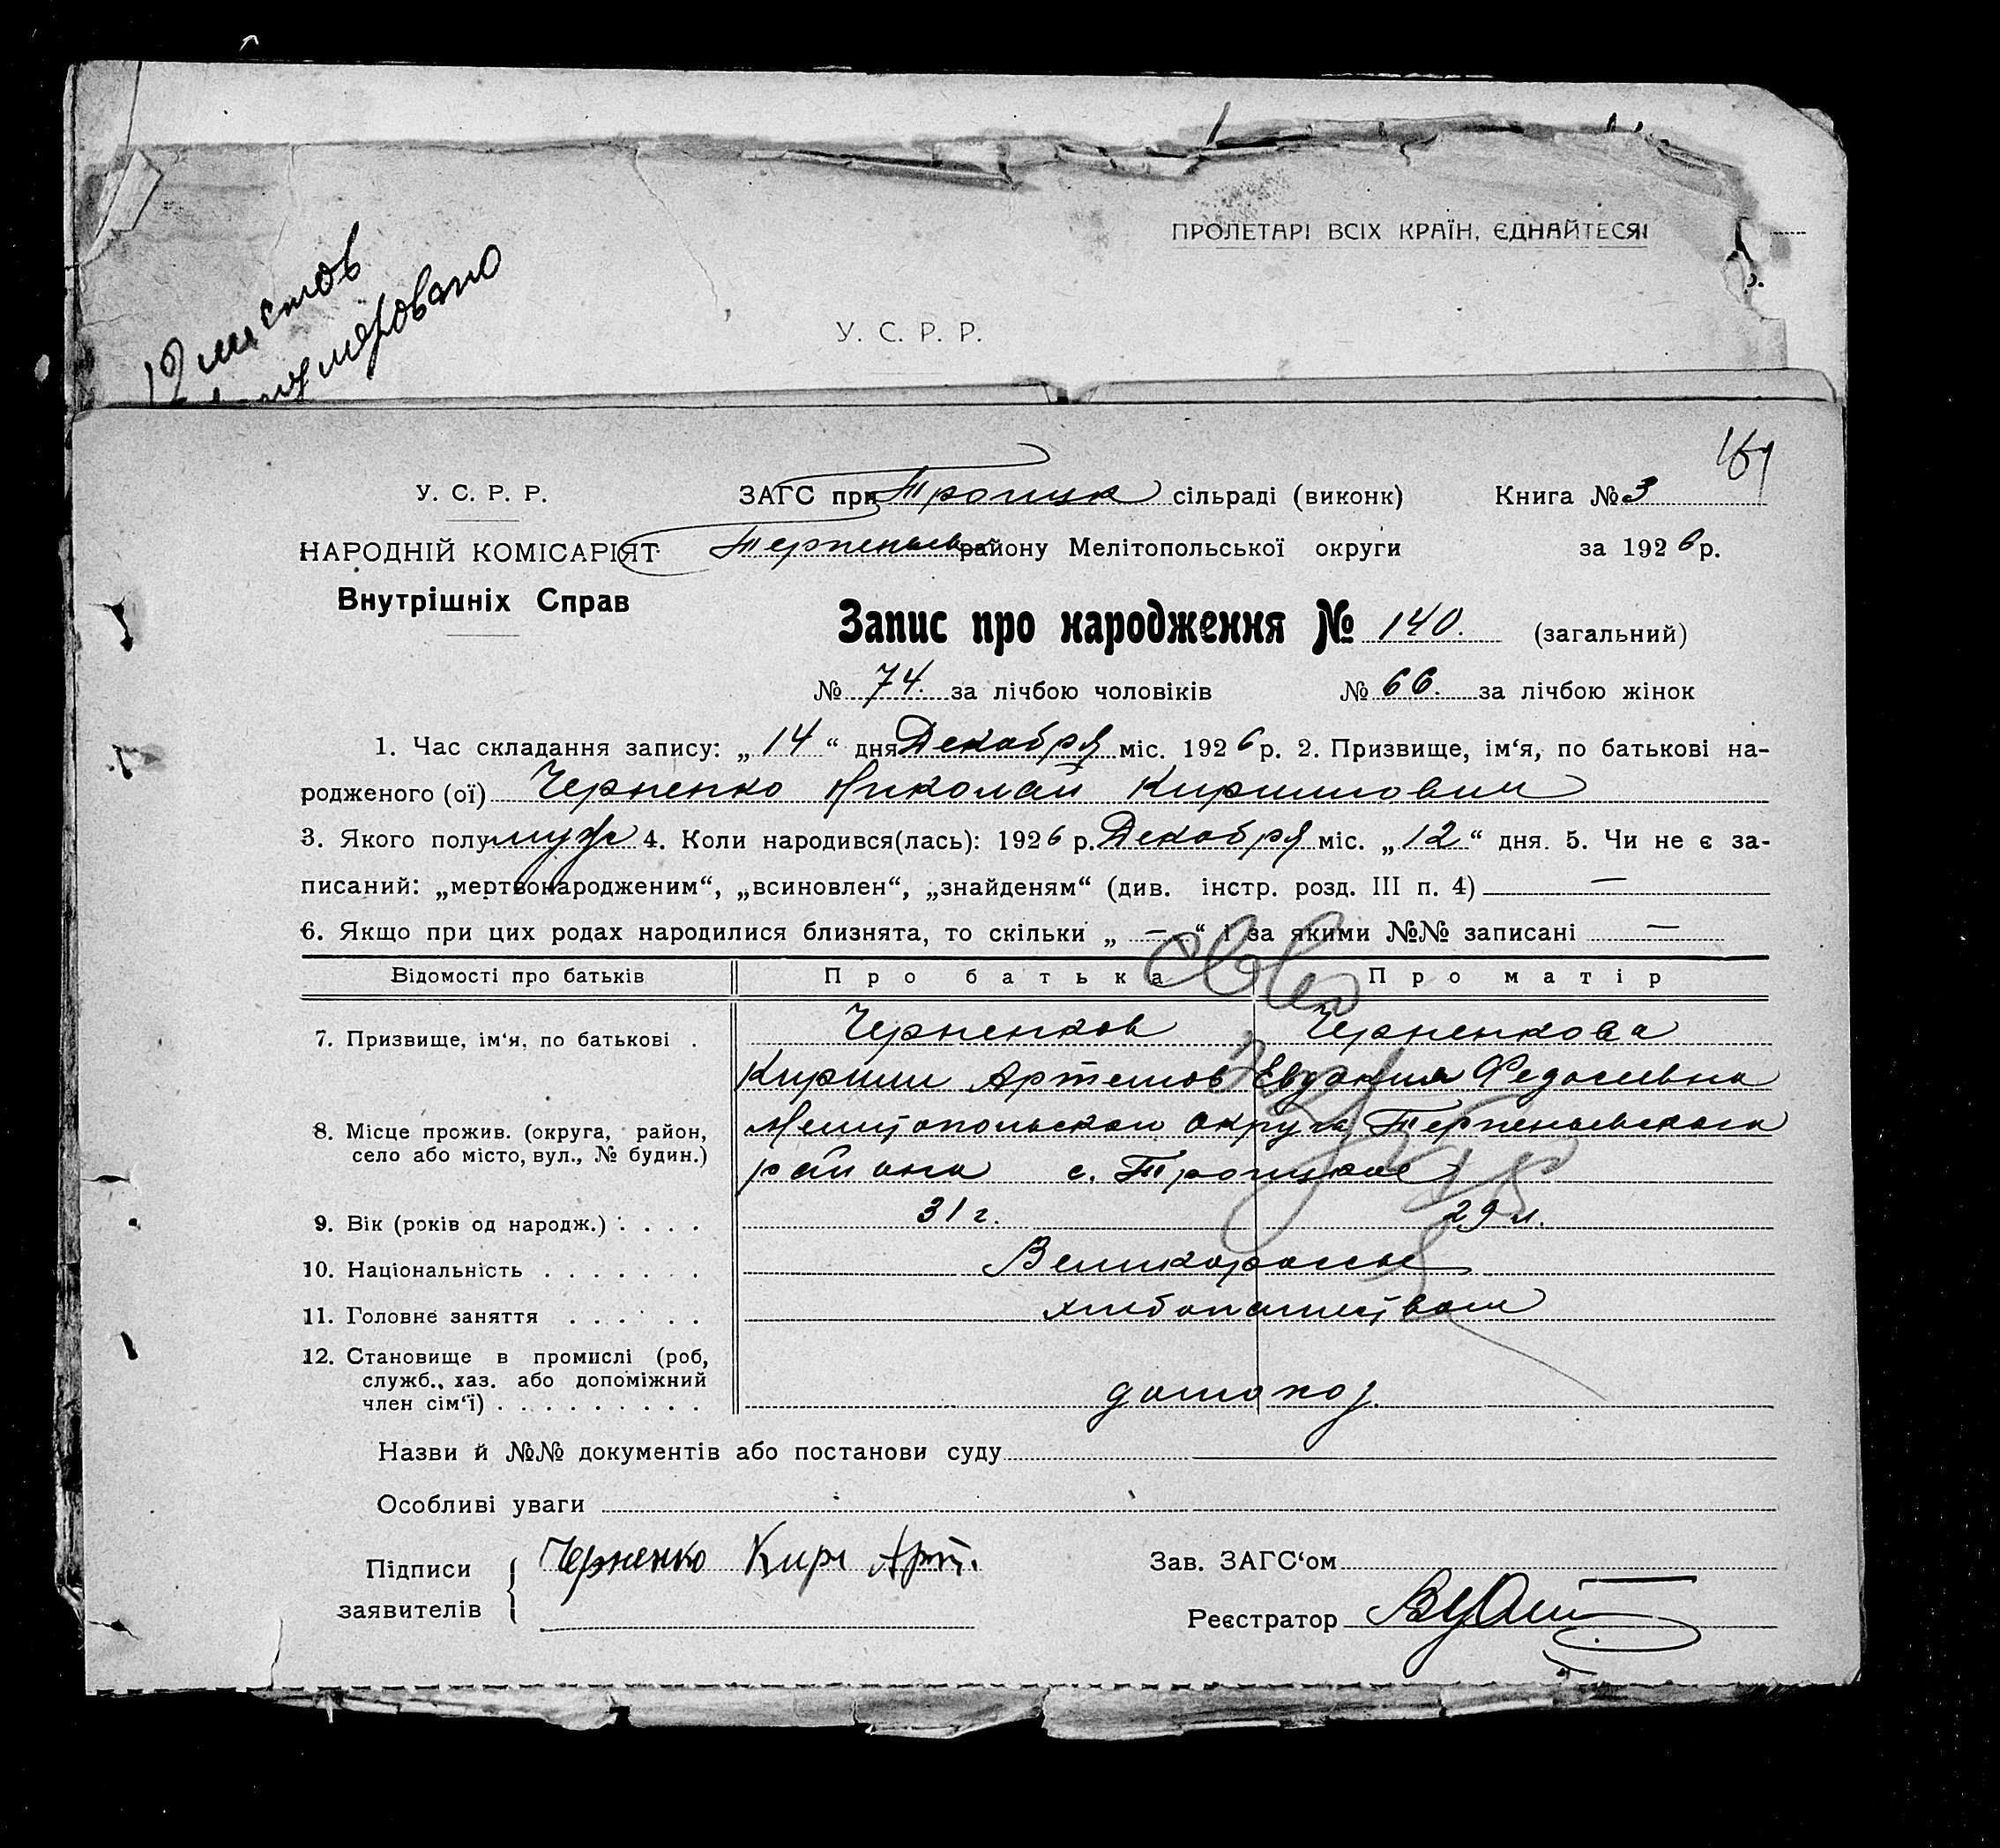 ПРОЛЕТАРІ ВСІХ КРАЇН, ЄДНАЙТЕСЯ!
У. С. Р. Р.
19 листов
пронумеровано
161
У. С. Р. Р.
ЗАГС при Троицк сільраді (виконк) Книга № 3
НАРОДНІЙ КОМІСАРІЯТ
Терпеньев району Мелітопольської округи за 1926 р.
Внутрішніх Справ
Запис про народження № 140. (загальний)
№ 74. за лічбою чоловіків № 66. за лічбою жінок
1. Час складання запису: „ 14 “ дня Декабря міс. 1926 р. 2. Призвище, ім‘я, по батькові на-
родженого (ої) Черненко Николай Кириллович
3. Якого полу муж 4. Коли народився(лась): 1926 р. Декабря міс. „ 12 “ дня. 5. Чи не є за-
писаний: „мертвонародженим“, „всиновлен“, „знайденям“ (див. інстр. розд. III п. 4) —
6. Якщо при цих родах народилися близнята, то скільки „ — “ і за якими №№ записані —
Відомості про батьків Про батька Про матір
7. Призвище, ім‘я, по батькові . Черненков Черненкова
Кирилл Артемов Евдокия Федосеевна
8. Місце прожив. (округа, район, село або місто, вул., № будин.) Мелитопольской округа Терпеньевского
района с. Троицкое
9. Вік (років од народж.) . . . . 31 г. 29 л.
10. Національність . . . . . . . Великороссы
11. Головне заняття . . . . . хлебопашеством
12. Становище в промислі (роб,
служб., хаз. або допоміжний
член сім‘ї) . . . . . . . . . домохоз.
Назви й №№ документів або постанови суду
Особливі уваги
Підписи заявителів Черненко Кир Арт.
Зав. ЗАГС‘ом
Реєстратор